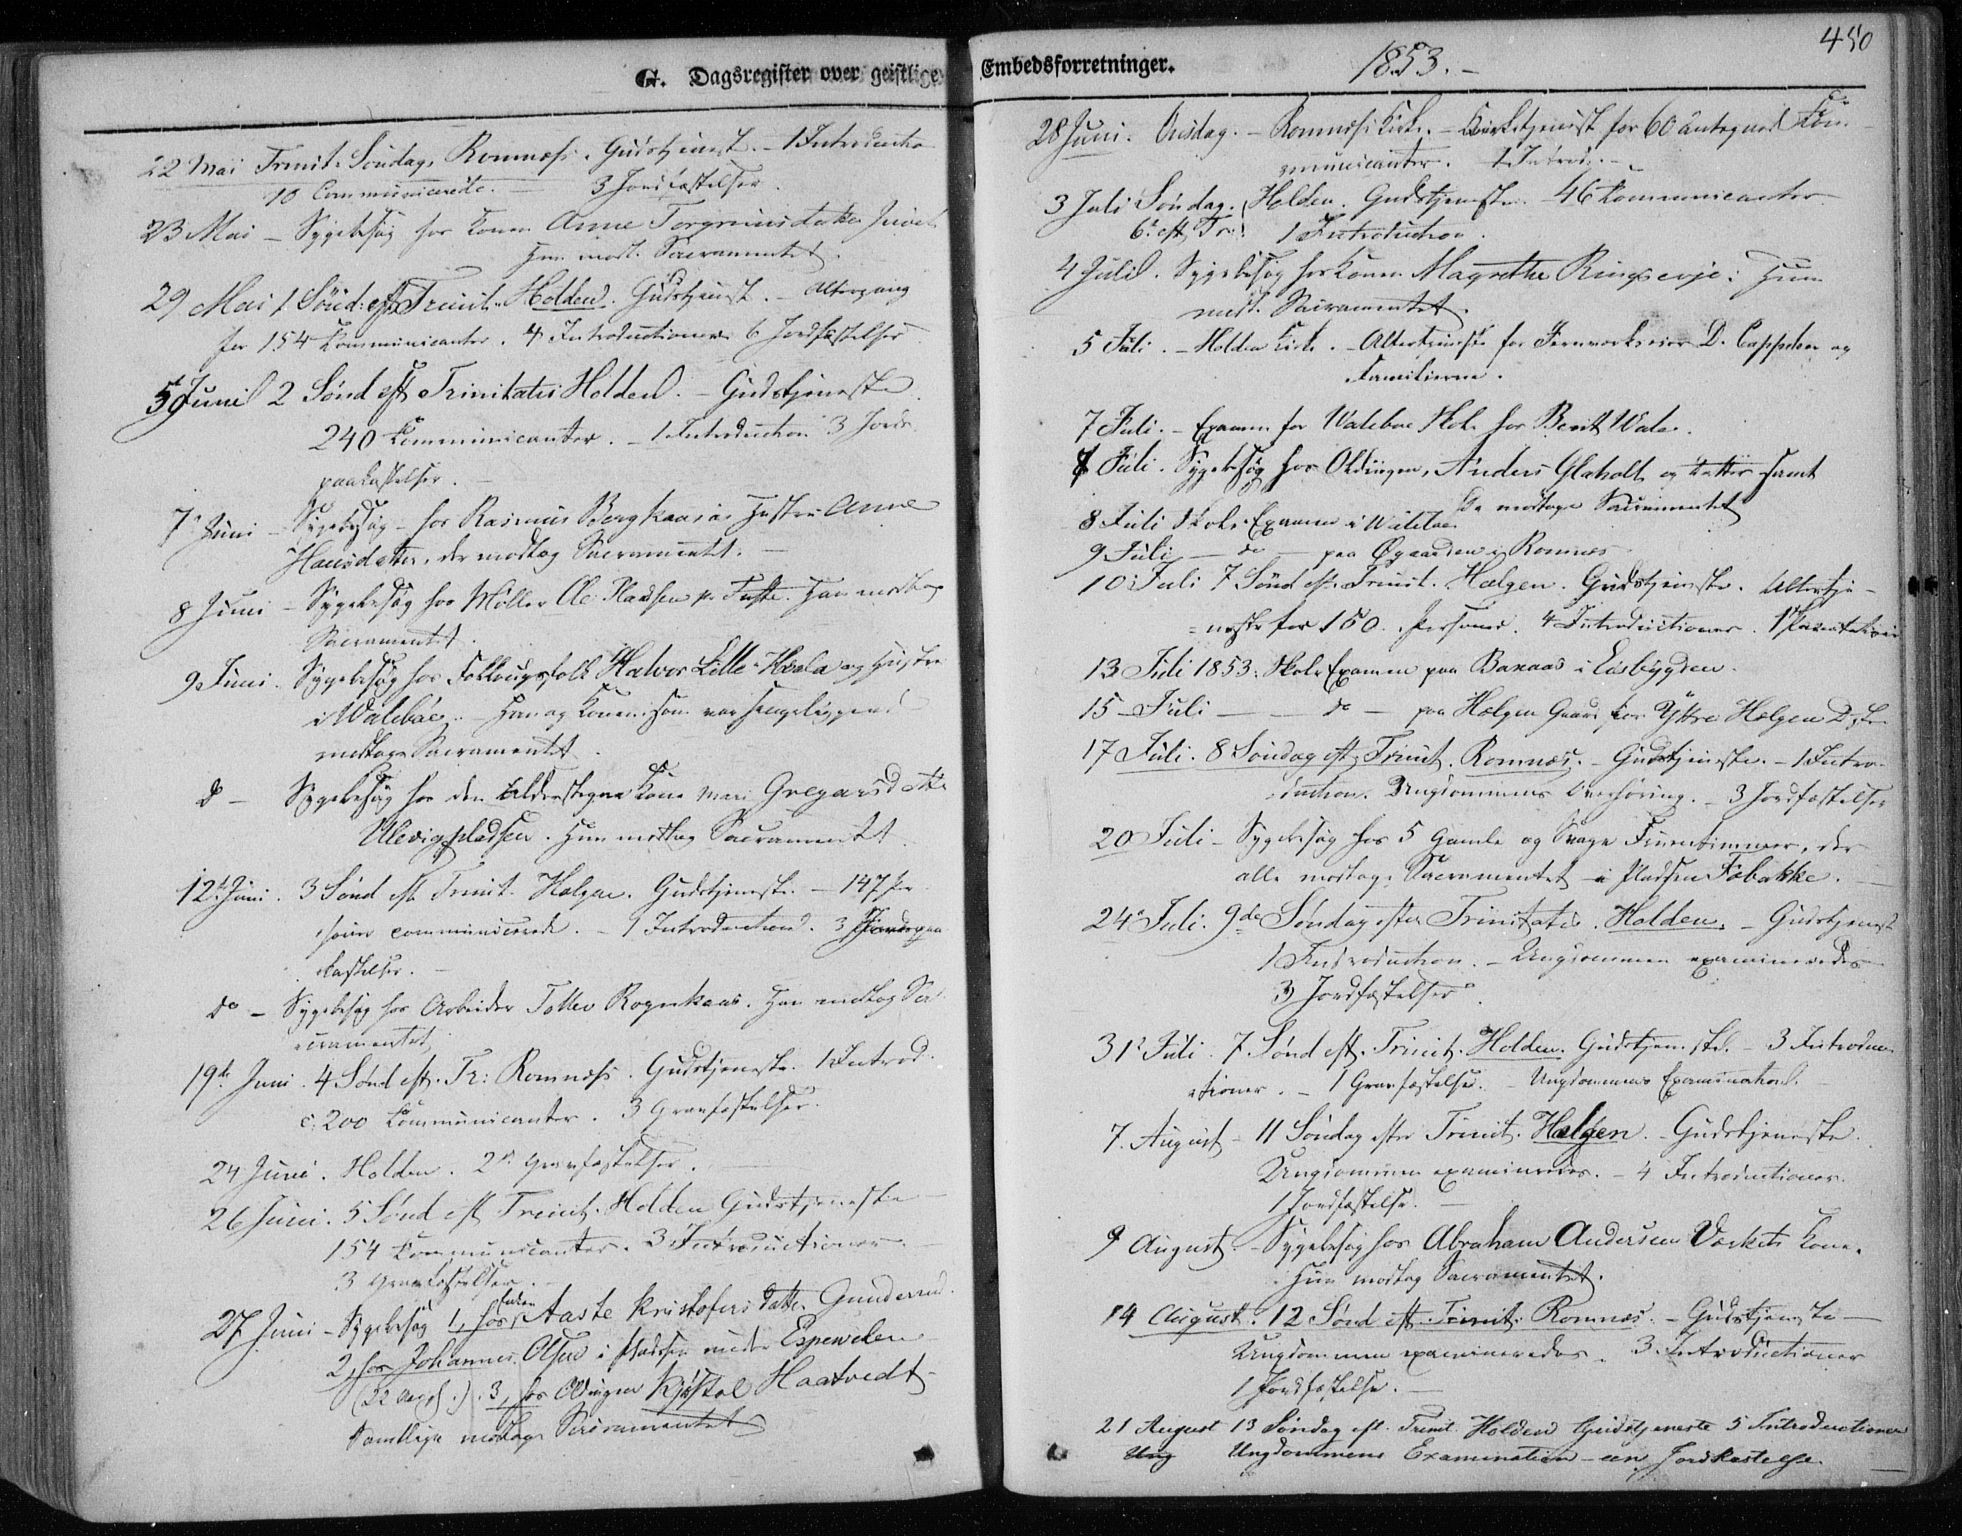 G. Dagsregister over geistlige Embedsforretninger. 1853. -
450
22 Mai Trinit. Søndag. Romnæs. Gudstjenest. - 1 Introductio
10 Communicerede. - 3 Jordfæstelser.
23 Mai - Sygebesøg hos Konen Anne Torgrimsdatter
Hun modt. Sacramentet.
29 Mai 1 Sønd: eft Trinit. Holden. Gudstjenest. - Altergang
for 154 Communicanter. 4 Introductioner 6 Jordfæstelser
5 Juni 2 Sønd eft Trinitatis Holden. - Gudstjeneste.
240 Communicanter. - 1 Introduction 3 Jords-
paakastelser.
7 Juni - Sygebesøg - hos Rasmus Bergkaasas Hustru Anne
Hansdatter, der modtog Sacramentet. -
8 Juni - Sygebesøg hos Møller Ole Hansen Han modtog
Sacramentet.
9 Juni. Sygebesøg hos Folkaugsfolk Halvor Lille Hvala og Hustru
i Walebøe. - Han og Konen som var sengeliggende
modtoge Sacramentet.
do - Sygebesøg hos den alderstegne Kone Mari Gregarsdatter
Ulevigpladsen. Hun modtog Sacramentet.
12te Juni. 3 Sønd eft. Trinit. Helgen. Gudstjeneste. - 147 Per-
soner communicerede. - 1 Introduction. 3 Jordpaa
kastelser. -
do - Sygebesøg hos Arbeider Tollev Rognkaas. Han modtog Sa-
cramentet.
19de Juni. 4 Sønd eft. Tr: Romnæs. Gudstjeneste. 1 Introd.
c. 200 Communicanter. 3 Gravfæstelser.
24 Juni. Holden. 2de Gravfæstelser.
26 Juni. 5 Sønd eft Trinit. Holden Gudstjeneste -
154 Communicanter. 3 Introductioner. -
3 Gravfæstelser. -
27 Juni - Sygebesøg 1, hos Enken Aaste Kristofersdatter Gunderud.
2, hos Johannes Olsen i Pladsen under Espevolden
(22 Aar gl.). 3, hos Oldingen Kjøstol Haatvedt -
Samtlige modtoge Sacramentet
28 Juni. Onsdag. - Romnæs Kirke. - Kirketjenest for 60 antegnede Com-
municanter. 1 Introd. -
3 Juli Søndag. Holden. Gudstjeneste. 46 Communicanter
6te eft Tr. 1 Introduction.
4 Juli. Sygebesøg hos Konen Magrethe Ringsevje: Hun
modt. Sacramentet.
5 Juli. - Holden Kirke. - Altertjeneste for Jernværkseier D. Cappelen og
Familien.
7 Juli. - Examen for Waleboe Skole hos Berit Wala.
7 Juli. Sygebesøg hos Oldingen, Anders Glaholt og Datter samt
De modtoge Sacramentet
8 Juli Skole-Examen i Walebøe
9 Juli - do - paa Øgaarden i Romnæs
10 Juli 7 Sønd eft. Trinit. Helgen. Gudstjeneste. Altertje-
neste for 150 Personer. 4 Introductioner. 1
13 Juli 1853. Skole Examen paa Baraas i Eiebygden.
15 Juli - do - paa Helgen Gaard hos Yttre Helgen
17 Juli. 8 Søndag eft Trinit. Romnæs. - Gudstjeneste. - 1 Intro-
duction. Ungdommens Overhøring. - 3 Jordfæstelser
20 Juli - Sygebesøg hos 5 Gamle og Svage Fruentimmer, der
alle modtoge Sacramentet - i Pladsen Fobakke. -
24de Juli. 9de Søndag efter Trinitatis. Holden. - Gudstjenest
1 Introduction. - Ungdommen examineredes
3 Jordfæstelser.
31te Juli. 7 Sønd eft. Trinit. Holden. Gudstjeneste. - 3 Introduc-
tioner. - 1 Gravfæstelse. - Ungdommens Examination.
7. August - 11 Søndag efter Trinit. Helgen. - Gudstjeneste.
Ungdommen examineredes. - 4 Introductioner.
1 Jordfæstelse. -
9 August - Sygebesøg hos Abraham Andersen Værkets Kone.
Hun modtog Sacramentet.
14 August. 12 Sønd eft. Trinit. Romnæs. - Gudstjeneste -
Ungdommen examineredes. 3 Introductioner
1 Jordfæstelse. -
21 August 13 Søndag eft. Trinit. Holden Gudstjeneste 5 Introductioner
Ung Ungdommens Examination - een Jordkastelse.